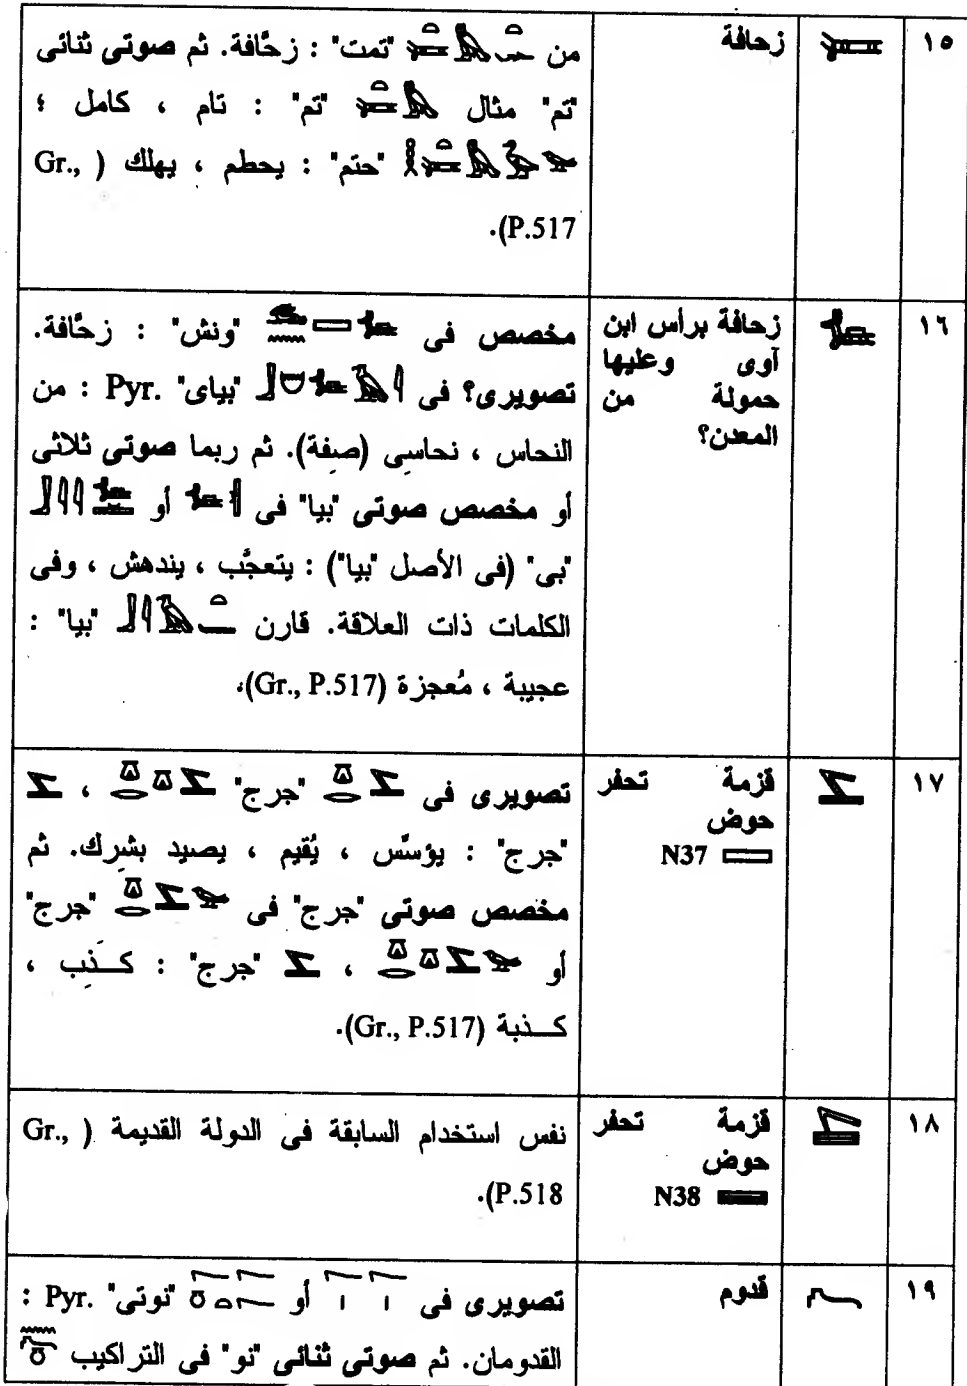 ١٥
زحافة
من 𓍃 "تمت" : زحَّافة. ثم صوتى ثنائى
"تم" مثال "تم" : تام ، كامل ؛
"حتم" : يحطم ، يهلك ( Gr.,
P.517).
١٦
زحافة برأس ابن
آوى وعليها
حمولة من
المعدن؟
مخصص فى "ونش" : زحَّافة.
تصويرى؟ فى "بياى" Pyr. : من
النحاس ، نحاسِى (صفة). ثم ربما صوتى ثلاثى
أو مخصص صوتى "بيا" فى أو
"بى" (فى الأصل "بيا") : يتعجَّب ، يندهش ، وفى
الكلمات ذات العلاقة. قارن "بيا" :
عجيبة ، مُعجزة (Gr., P.517).
١٧
قزمة تحفر
حوض
N37
تصويرى فى "جرج" ،
"جرج" : يؤسِّس ، يُقيم ، يصيد بشرِك. ثم
مخصص صوتى "جرج" فى "جرج"
أو ، "جرج" : كــذِب ،
كــذبة (Gr., P.517).
١٨
قزمة تحفر
حوض
N38
نفس استخدام السابقة فى الدولة القديمة ( Gr.,
P.518).
١٩
قدوم
تصويرى فى أو "نوتى" Pyr. :
القدومان. ثم صوتى ثنائى "نو" فى التراكيب